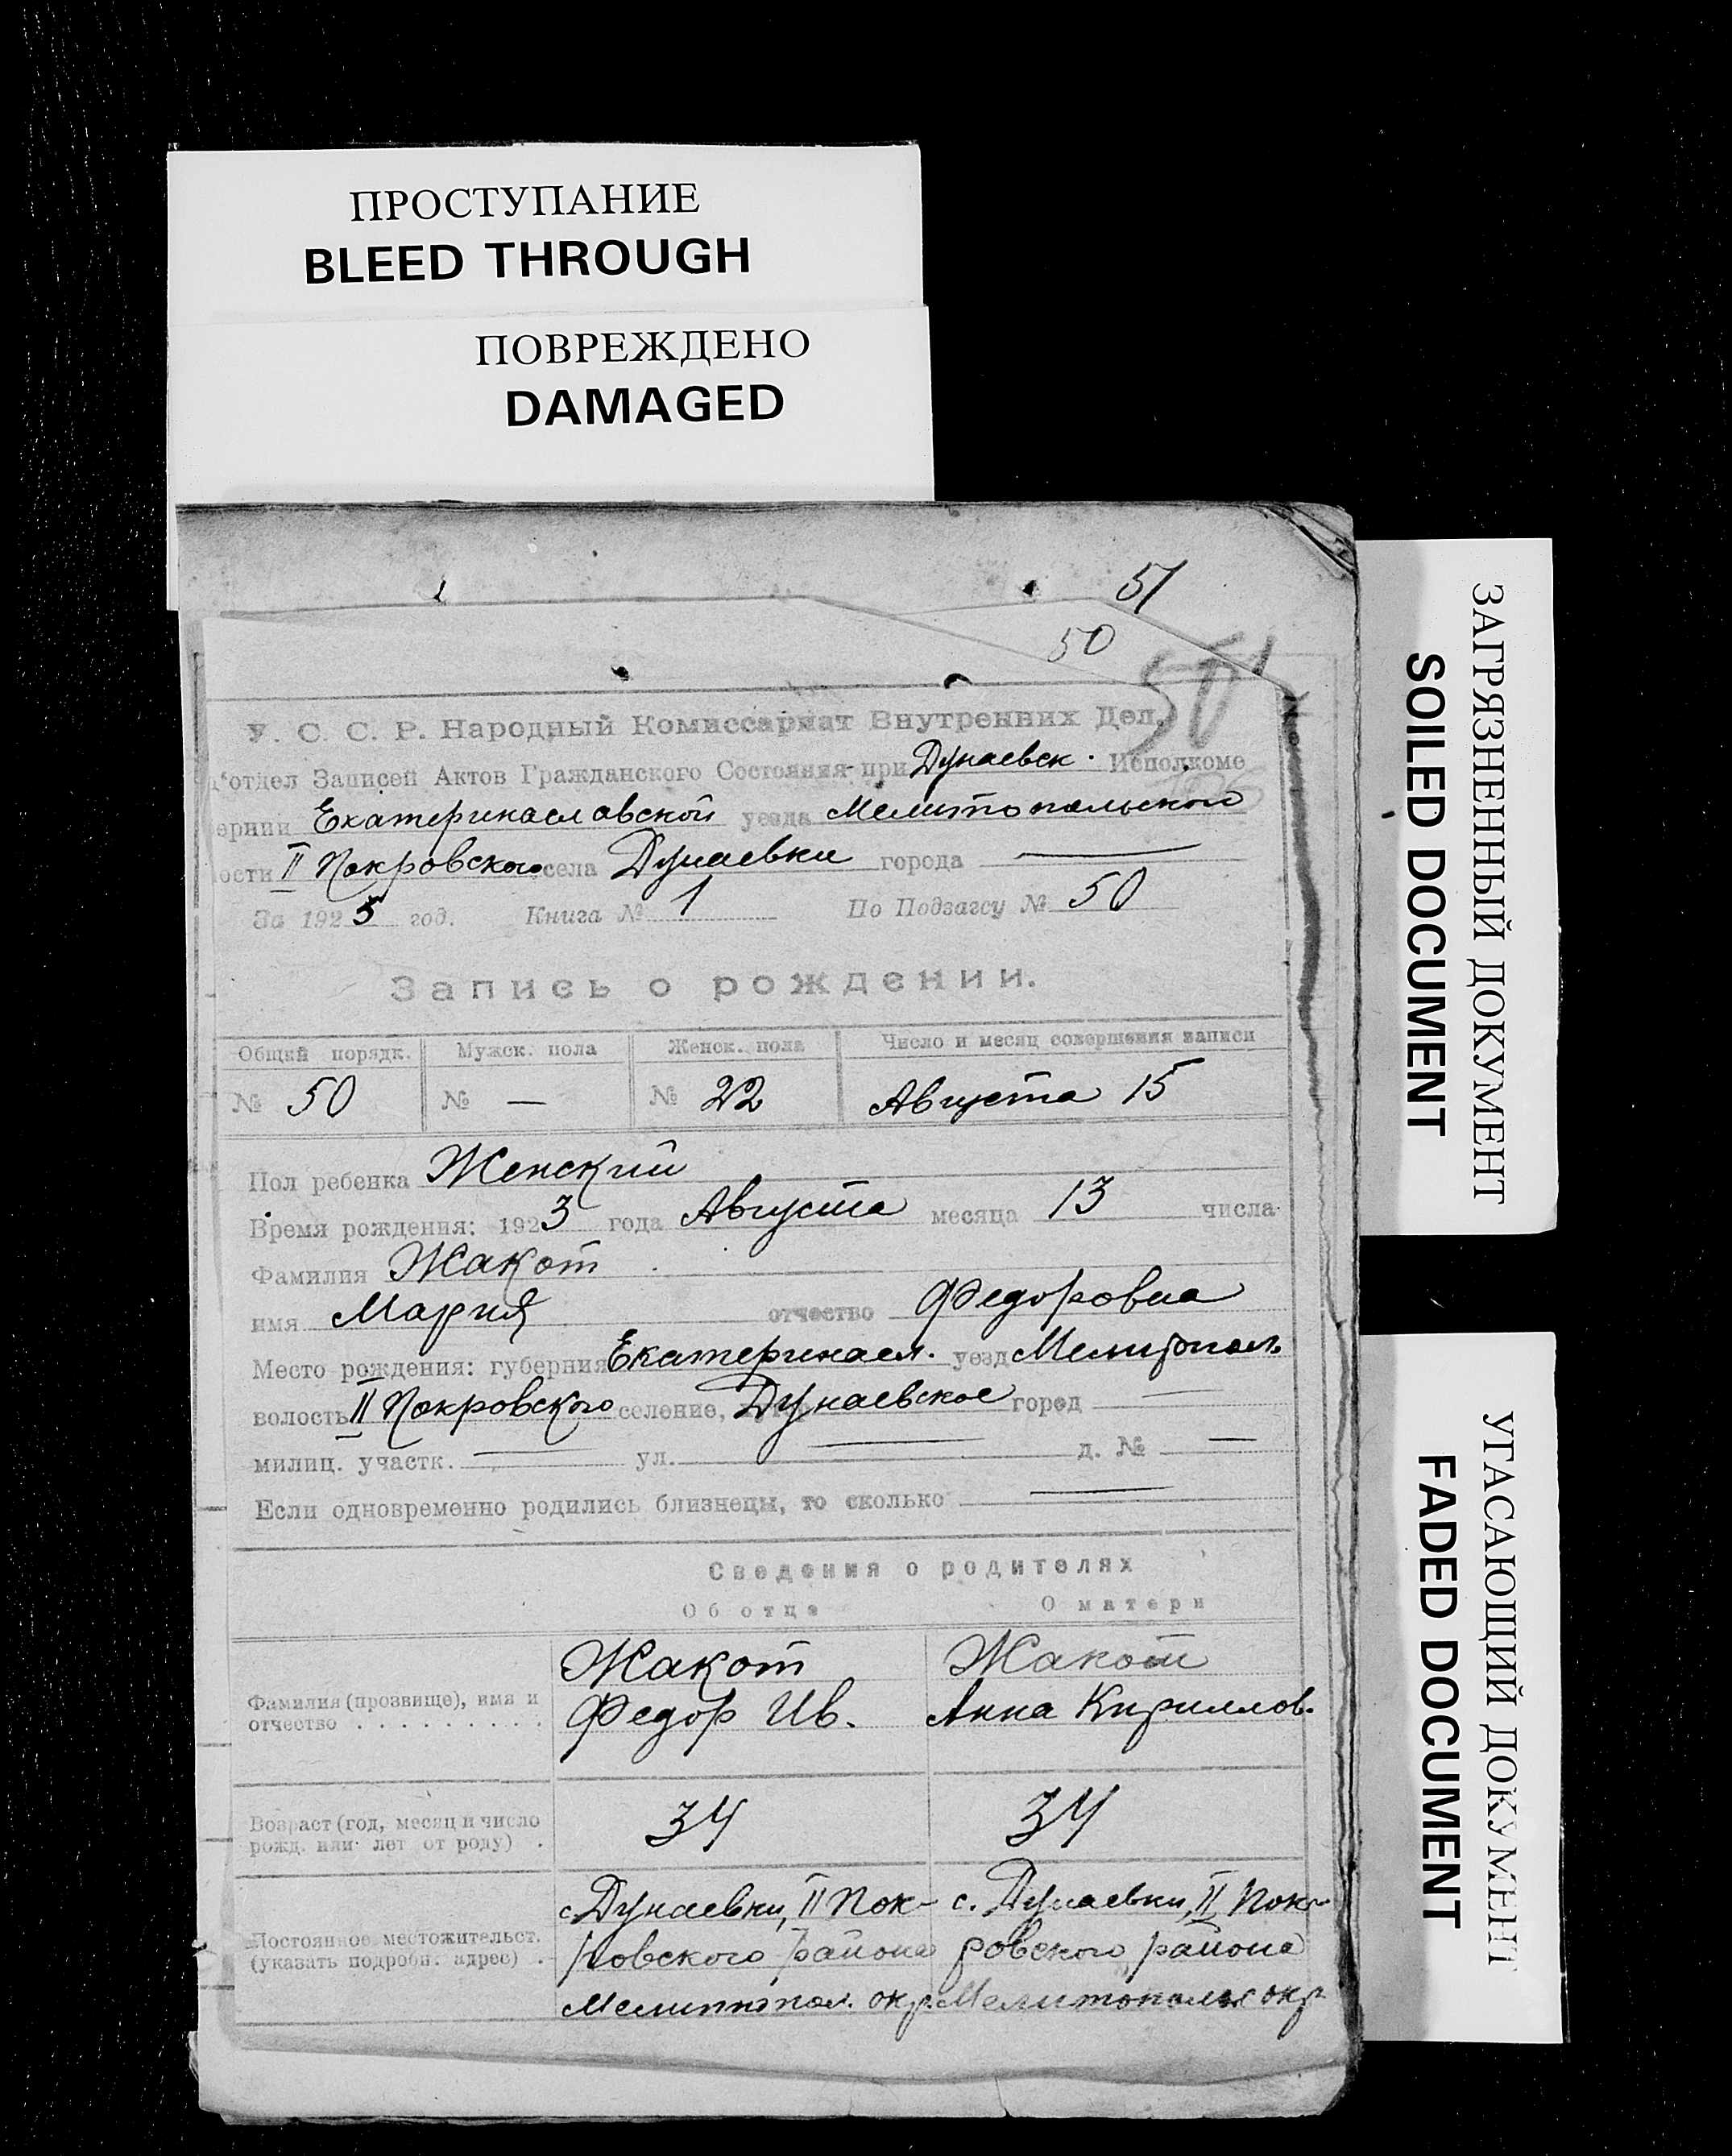 ПРОСТУПАНИЕ
BLEED THROUGH
ПОВРЕЖДЕНО
DAMAGED
ЗАГРЯЗНЕННЫЙ ДОКУМЕНТ
SOILED DOCUMENT
УГАСАЮЩИЙ ДОКУМЕНТ
FADED DOCUMENT
51
50
У. С. С. Р. Народный Комиссариат Внутренних Дел.
отдел Записей Актов Гражданского Состояния при Дунаевск. Исполкоме
ернии Екатеринославской уезда Мелитопольского
ости II Покровского села Дунаевки города —
За 1923 год. Книга № 1 По Подзагсу № 50
Запись о рождении.
Общий порядк. Мужск. пола Женск. пола Число и месяц совершения записи
№ 50 № — № 22 Августа 15
Пол ребенка Женский
Время рождения: 1923 года Августа месяца 13 числа
Фамилия Жакот
имя Мария отчество Федоровна
Место рождения: губерния Екатеринасл. уезд Мелитопол.
волость II Покровского селение, Дунаевское город —
милиц. участк. — ул. — д. № —
Если одновременно родились близнецы, то сколько —
Сведения о родителях
Об отце О матери
Жакот Жакот
Фамилия (прозвище), имя и отчество Федор Ив. Анна Кириллов.
Возраст (год, месяц и число рожд. или лет от роду) . 34 34
с. Дунаевки, II Пок- с. Дунаевки, II Пок-
Постоянное местожительст. (указать подробн. адрес) . ровского района ровского района
Мелитопол. окр. Мелитопольс окр.